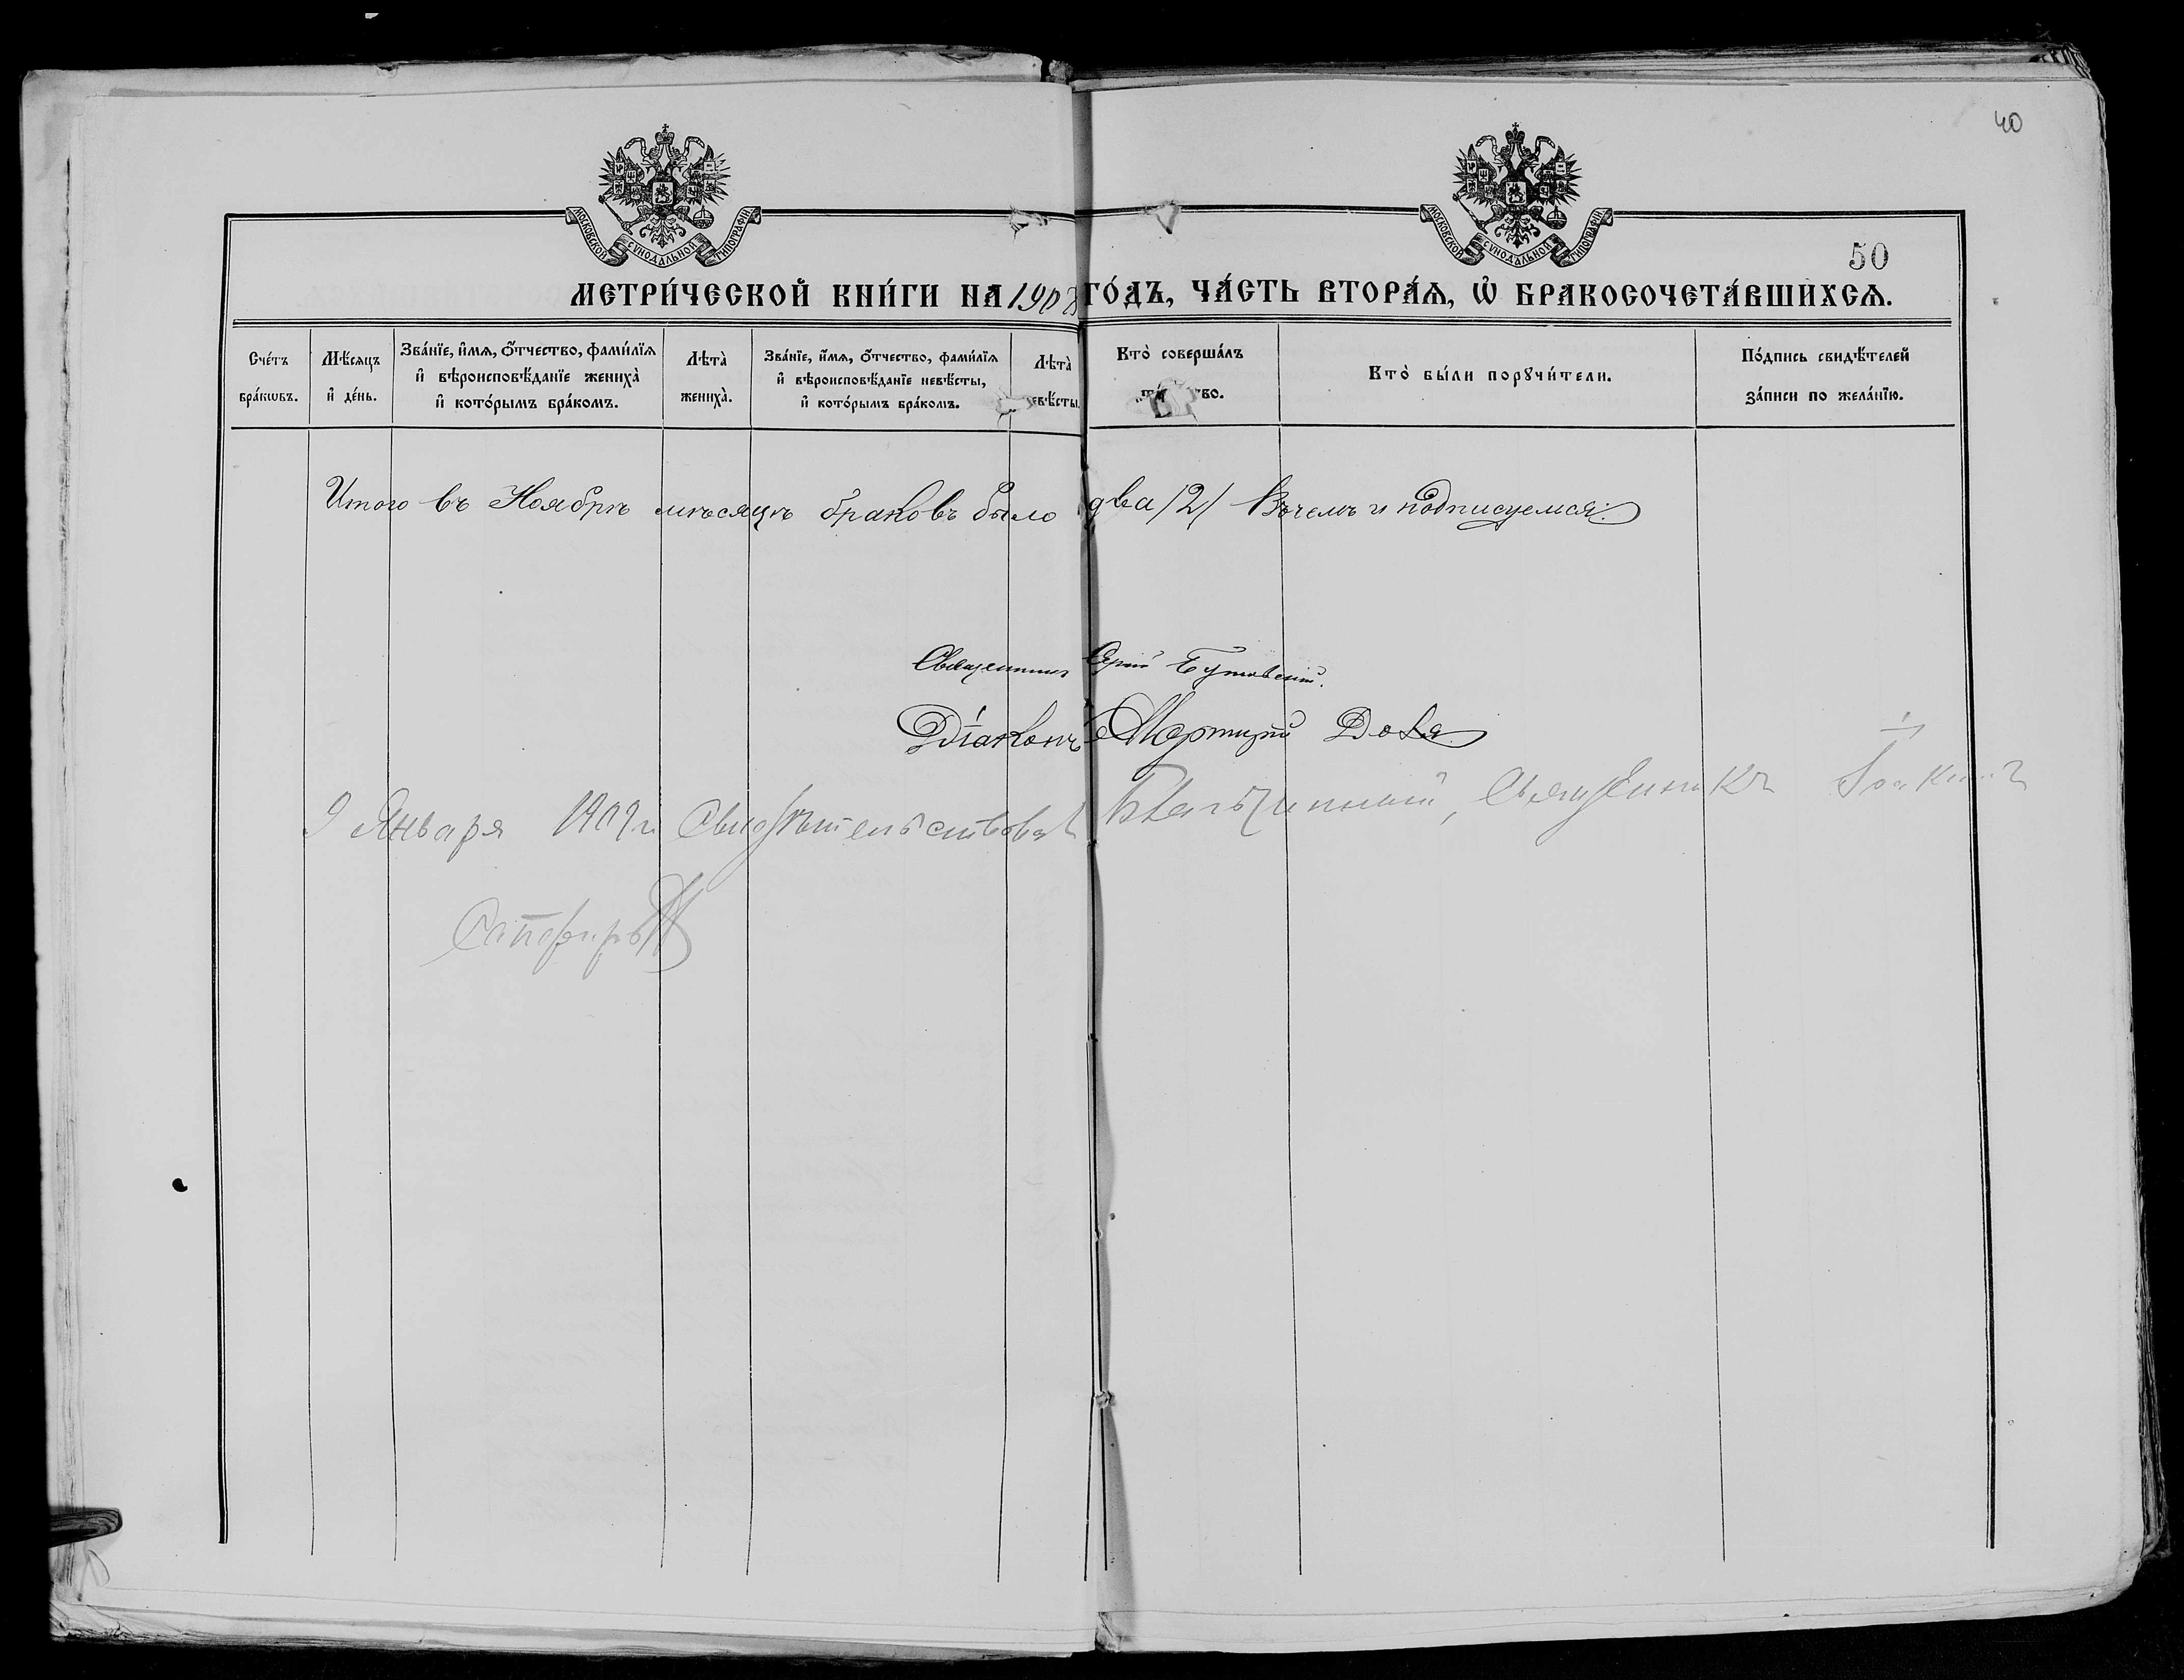 40
МОСКОВСКОЙ СѴНОДАЛЬНОЙ ТИПОГРАФІИ
МОСКОВСКОЙ СѴНОДАЛЬНОЙ ТИПОГРАФІИ
50
МЕТРИ́ЧЕСКОЙ КНИ́ГИ НА 1908 ГО́ДЪ, ЧА́СТЬ ВТОРА́Ѧ, Ѽ БРАКОСОЧЕТА́ВШИХСѦ.
Сче́тъ бра́кѡвъ.
Мѣ́сяцъ и҆ де́нь.
Зва́нїе, и҆́мѧ, ѻ҆́тчество, фами́лїѧ и҆ вѣроисповѣ́данїе жениха̀ и҆ кото́рымъ бра́комъ.
Лѣта̀ жениха̀.
Зва́нїе, и҆́мѧ, ѻ҆́тчество, фами́лїѧ и҆ вѣроисповѣ́данїе невѣ́сты, и҆ кото́рымъ бра́комъ.
Лѣта̀ евѣ́сты.
Кто̀ соверша́лъ во.
Кто̀ бы́ли порꙋчи́тели.
По́дпись свидѣ́телей за́писи по жела́нїю.
Итого въ Ноябрѣ мѣсяцѣ браковъ было два /2/ Вчемъ и подписуемся
Священникъ Бутовскій.
Діаконъ Мартирій
9 Января 1909 г. Свидѣтельствовалъ Благочинный, Священникъ